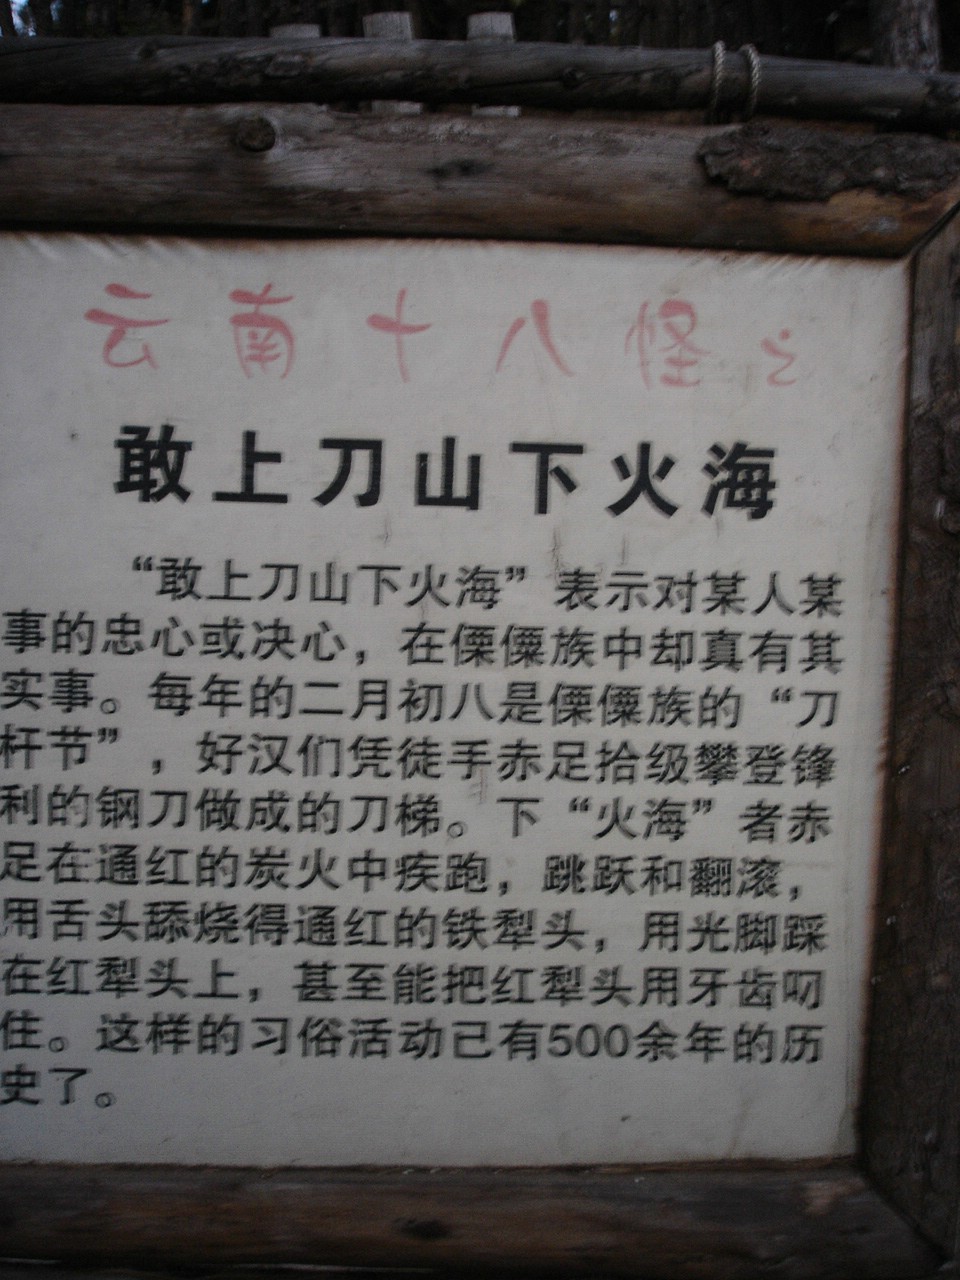 云南十八怪之
敢上刀山下火海
“敢上刀山下火海”表示对某人某
事的忠心或决心，在傈僳族中却真有其
实事。每年的二月初八是傈僳族的“刀
杆节”，好汉们凭徒手赤足拾级攀登锋
利的钢刀做成的刀梯。下“火海”者赤
足在通红的炭火中疾跑，跳跃和翻滚，
用舌头舔烧得通红的铁犁头，用光脚踩
在红犁头上，甚至能把红犁头用牙齿叨
住。这样的习俗活动己有500余年的历
史了。